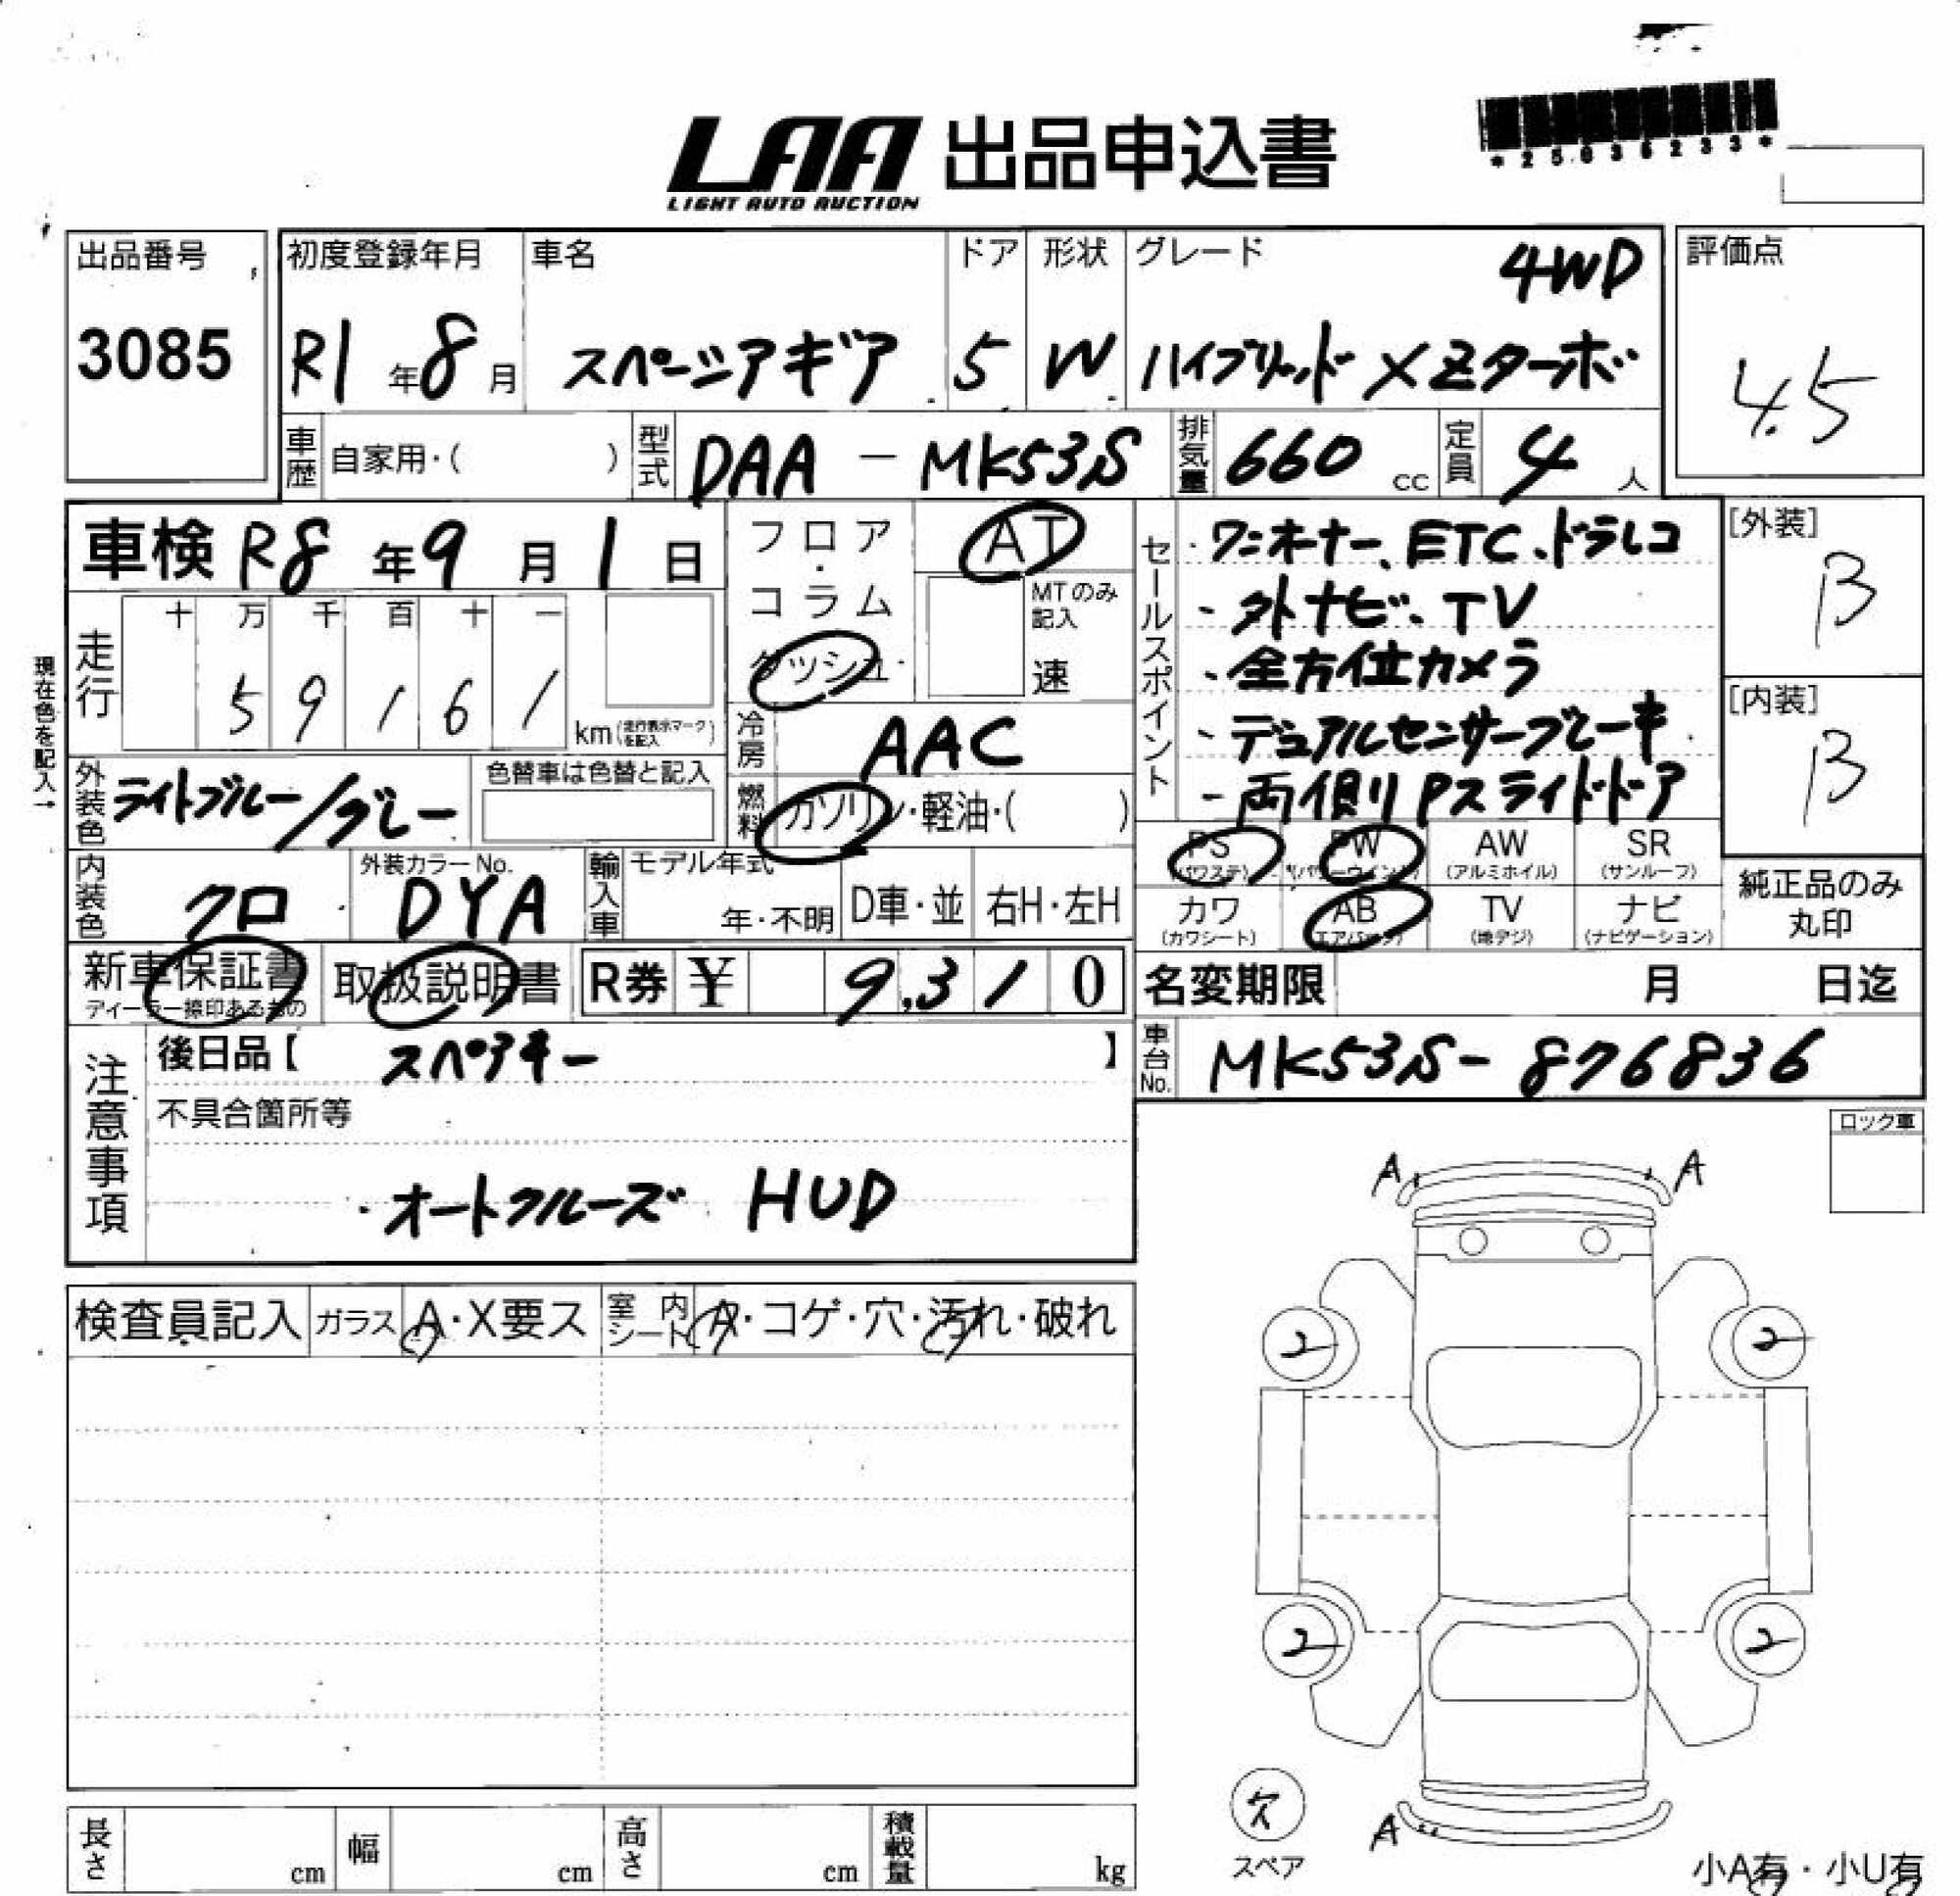 *25036233*
LAA 出品申込書
LIGHT AUTO AUCTION
出品番号
3085
初度登録年月
R1年8月
車名
スペーシアギア
ドア
5
形状
W
グレード
4WD
ハイブリッド XZターボ
評価点
4.5
車歴 自家用・( )
型式 DAA - MK53S
排気量 660 cc
定員 4 人
車検 R8年9月1日
フロア・コラム
ダッシュ
AT
MTのみ記入
速
セールスポイント
・ワンオーナー、ETC、ドラレコ
・外ナビ、TV
・全方位カメラ
・デュアルセンサーブレーキ
・両側Pスライドドア
[外装]
B
[内装]
B
現在色を記入→
走行
十 万 千 百 十 一
5 9 1 6 1
km(走行表示マークを記入)
冷房 AAC
外装色 ライトブルー/グレー
色替車は色替と記入
燃料 ガソリン・軽油・( )
PS (パワステ)
PW (パワーウインド)
AW (アルミホイル)
SR (サンルーフ)
カワ (カワシート)
AB (エアバッグ)
TV (地デジ)
ナビ (ナビゲーション)
純正品のみ
丸印
内装色 クロ
外装カラーNo.
DYA
輸入車
モデル年式
年・不明
D車・並
右H・左H
新車保証書
ディーラー捺印あるもの
取扱説明書
R券 ¥ 9,310
名変期限 月 日迄
注意事項
後日品【 スペアキー 】
車台No. MK53S-876836
不具合箇所等
・オートクルーズ HUD
ロック車
A A
検査員記入
ガラス A・X要ス
室内シート A・コゲ・穴・汚れ・破れ
2 2
2 2
欠
スペア
A
長さ cm
幅 cm
高さ cm
積載量 kg
小A有・小U有